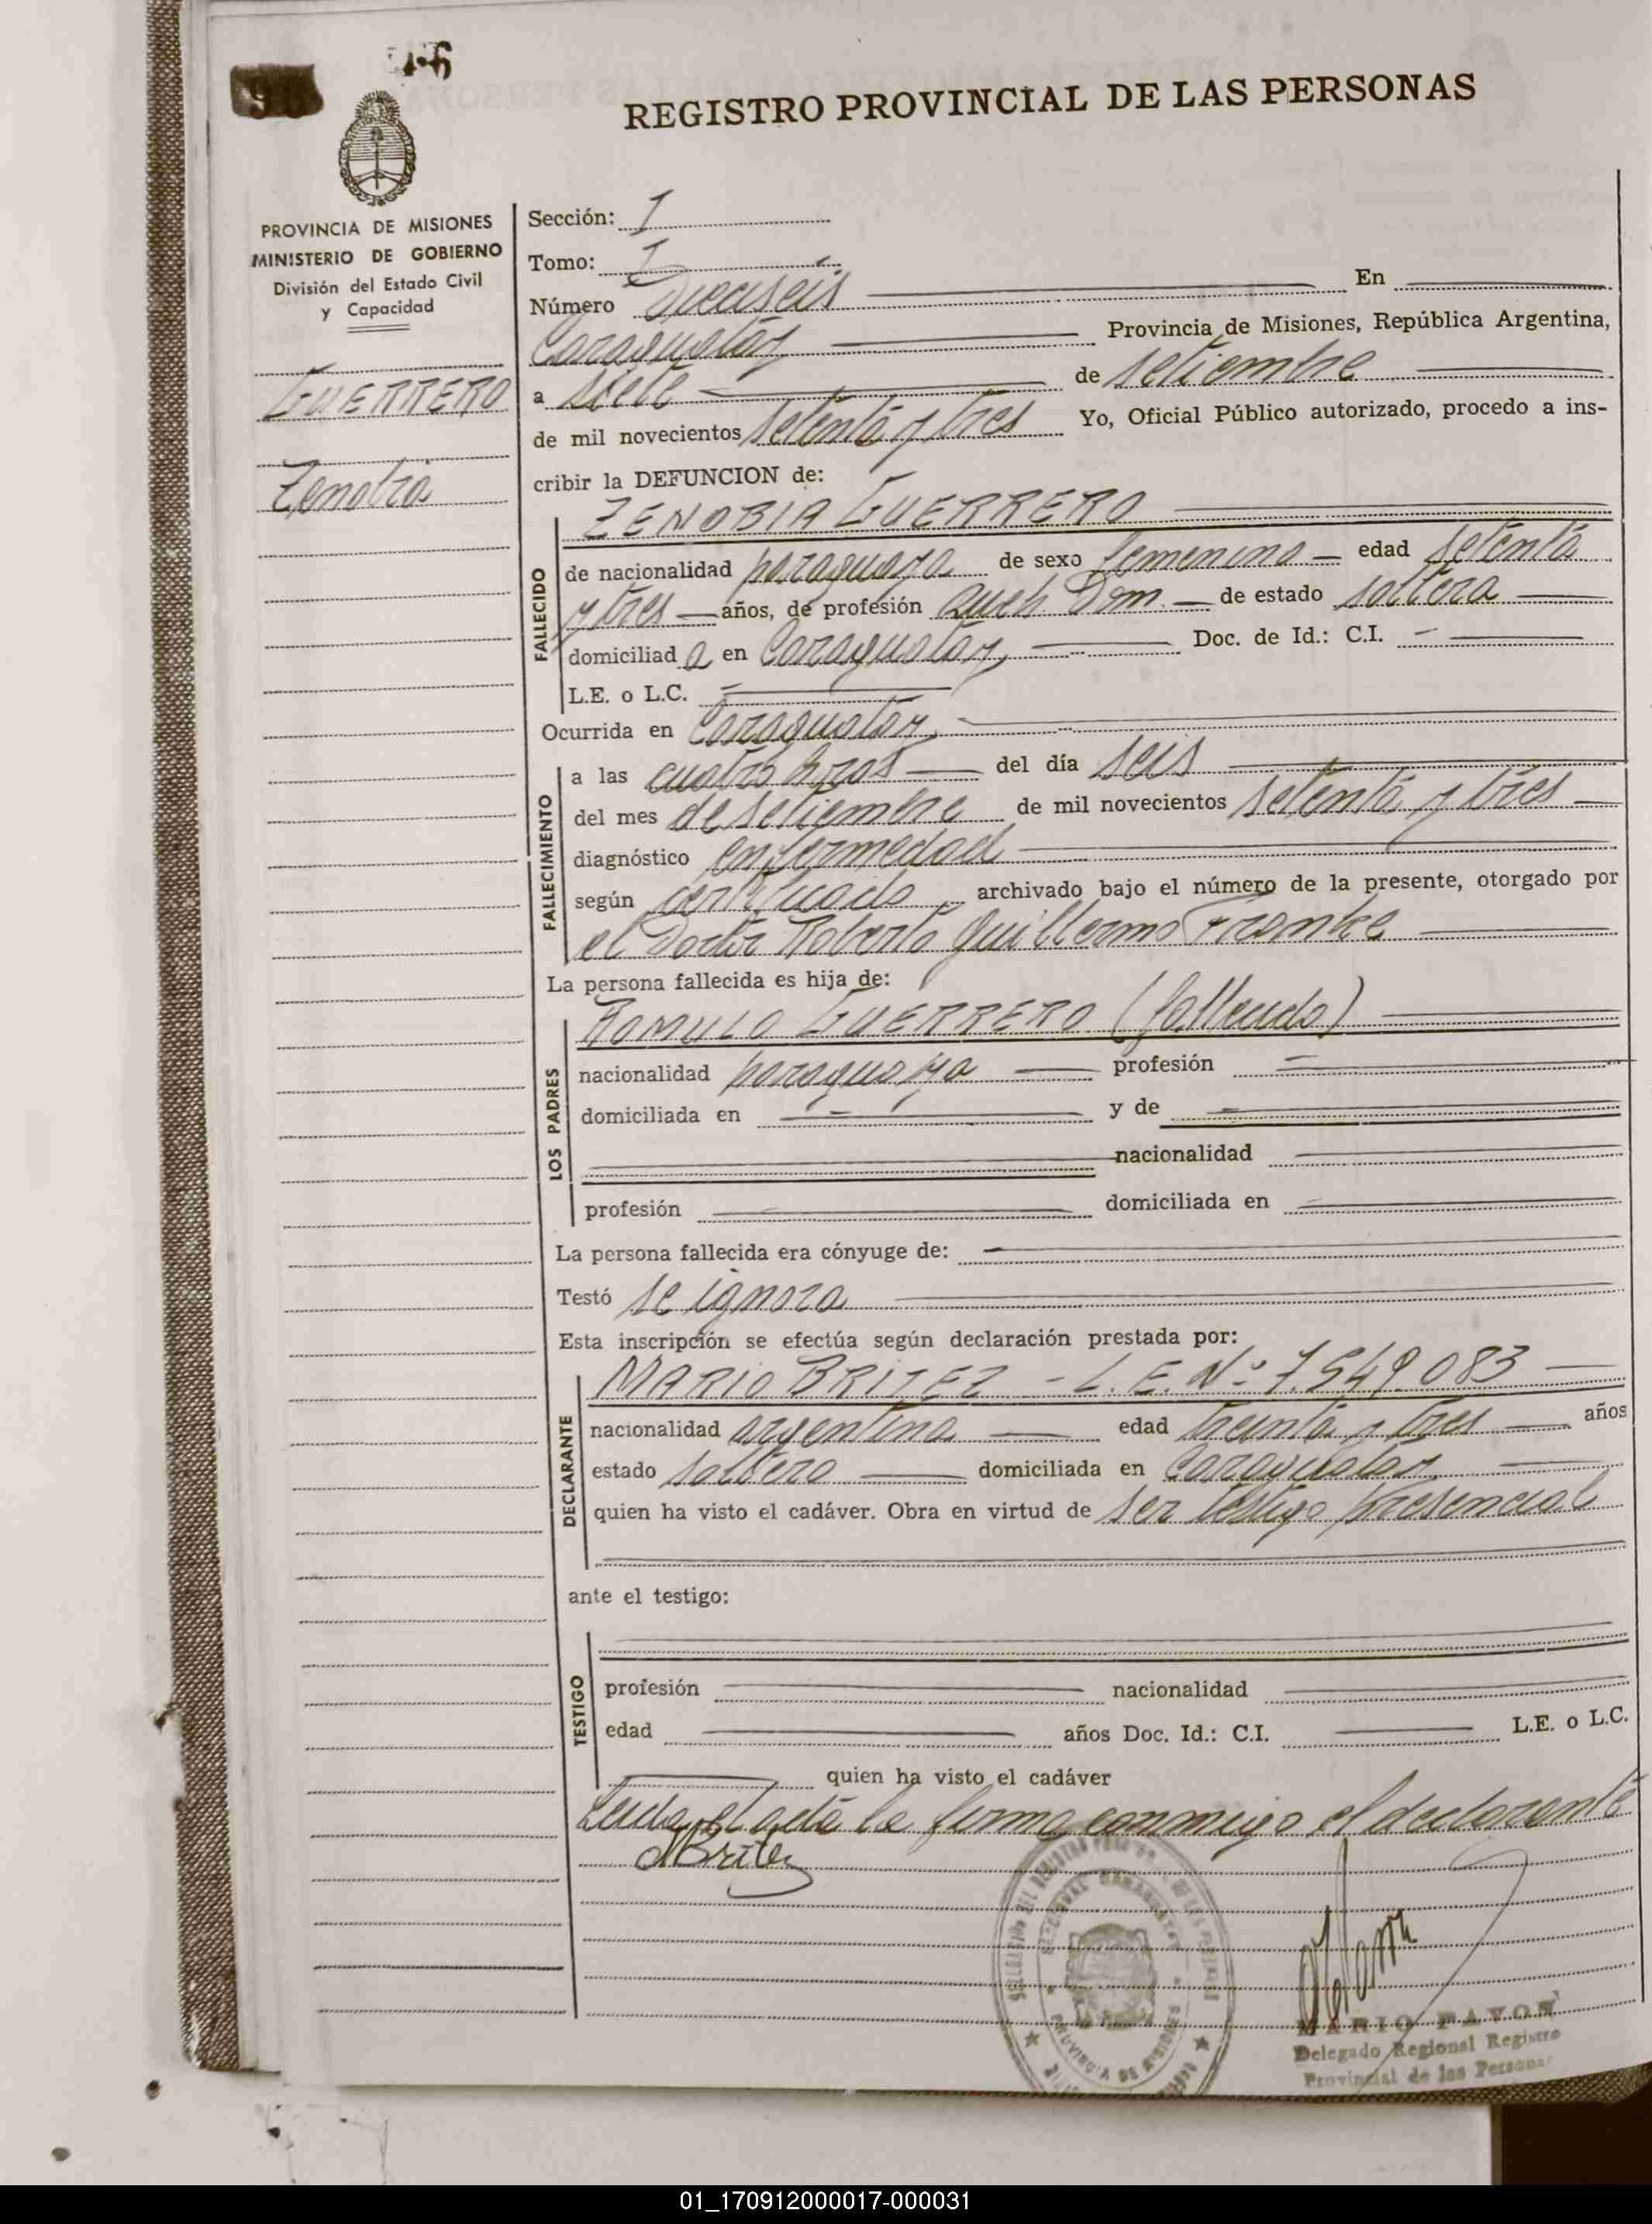 46
REGISTRO PROVINCIAL DE LAS PERSONAS
PROVINCIA DE MISIONES
MINISTERIO DE GOBIERNO
División del Estado Civil
y Capacidad
GUERRERO
Zenobia
Sección: I
Tomo: I
Número Dieciseis En
Caraguatay Provincia de Misiones, República Argentina,
a siete de setiembre
de mil novecientos setenta y tres Yo, Oficial Público autorizado, procedo a ins-
cribir la DEFUNCION de:
FALLECIDO
ZENOBIA GUERRERO
de nacionalidad paraguaya de sexo femenino edad setenta
y tres años, de profesión Queh. Dom. de estado soltera
domiciliad a en Caraguatay Doc. de Id.: C.I.
L.E. o L.C.
Ocurrida en Caraguatay
FALLECIMIENTO
a las cuatro horas del día seis
del mes de setiembre de mil novecientos setenta y tres
diagnóstico enfermedad
según certificado archivado bajo el número de la presente, otorgado por
el Doctor Roberto Guillermo Franke
La persona fallecida es hija de:
LOS PADRES
ROMULO GUERRERO (fallecido)
nacionalidad paraguaya profesión
domiciliada en y de
nacionalidad
profesión domiciliada en
La persona fallecida era cónyuge de:
Testó se ignora
Esta inscripción se efectúa según declaración prestada por:
DECLARANTE
MARIO BRITEZ - L.E. Nº 7.549.083
nacionalidad argentina edad treinta y tres años
estado soltero domiciliada en Caraguatay
quien ha visto el cadáver. Obra en virtud de ser testigo presencial
ante el testigo:
TESTIGO
profesión nacionalidad
edad años Doc. Id.: C.I. L.E. o L.C.
quien ha visto el cadáver
Leida el acta la firma conmigo el declarante
MBritez
PROVINCIA DE MISIONES
MARIO PAVON
Delegado Regional Registro
Provincial de las Personas
01_170912000017-000031